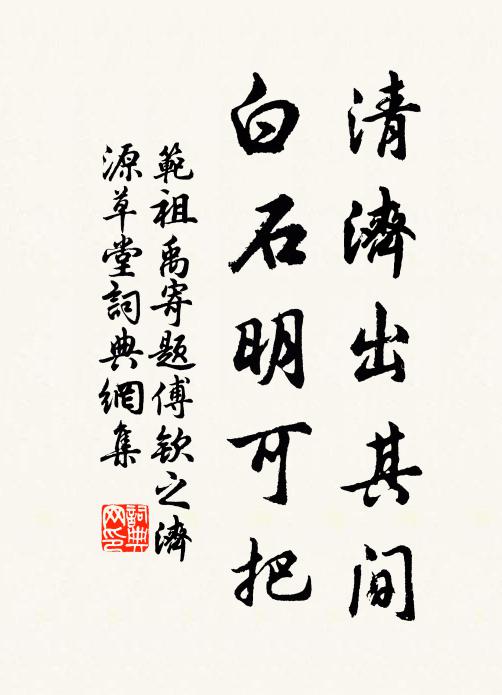 清濟出其间
白石明可把
範祖禹寄題傅欽之濟
源草堂詞典網集
詞典
网印